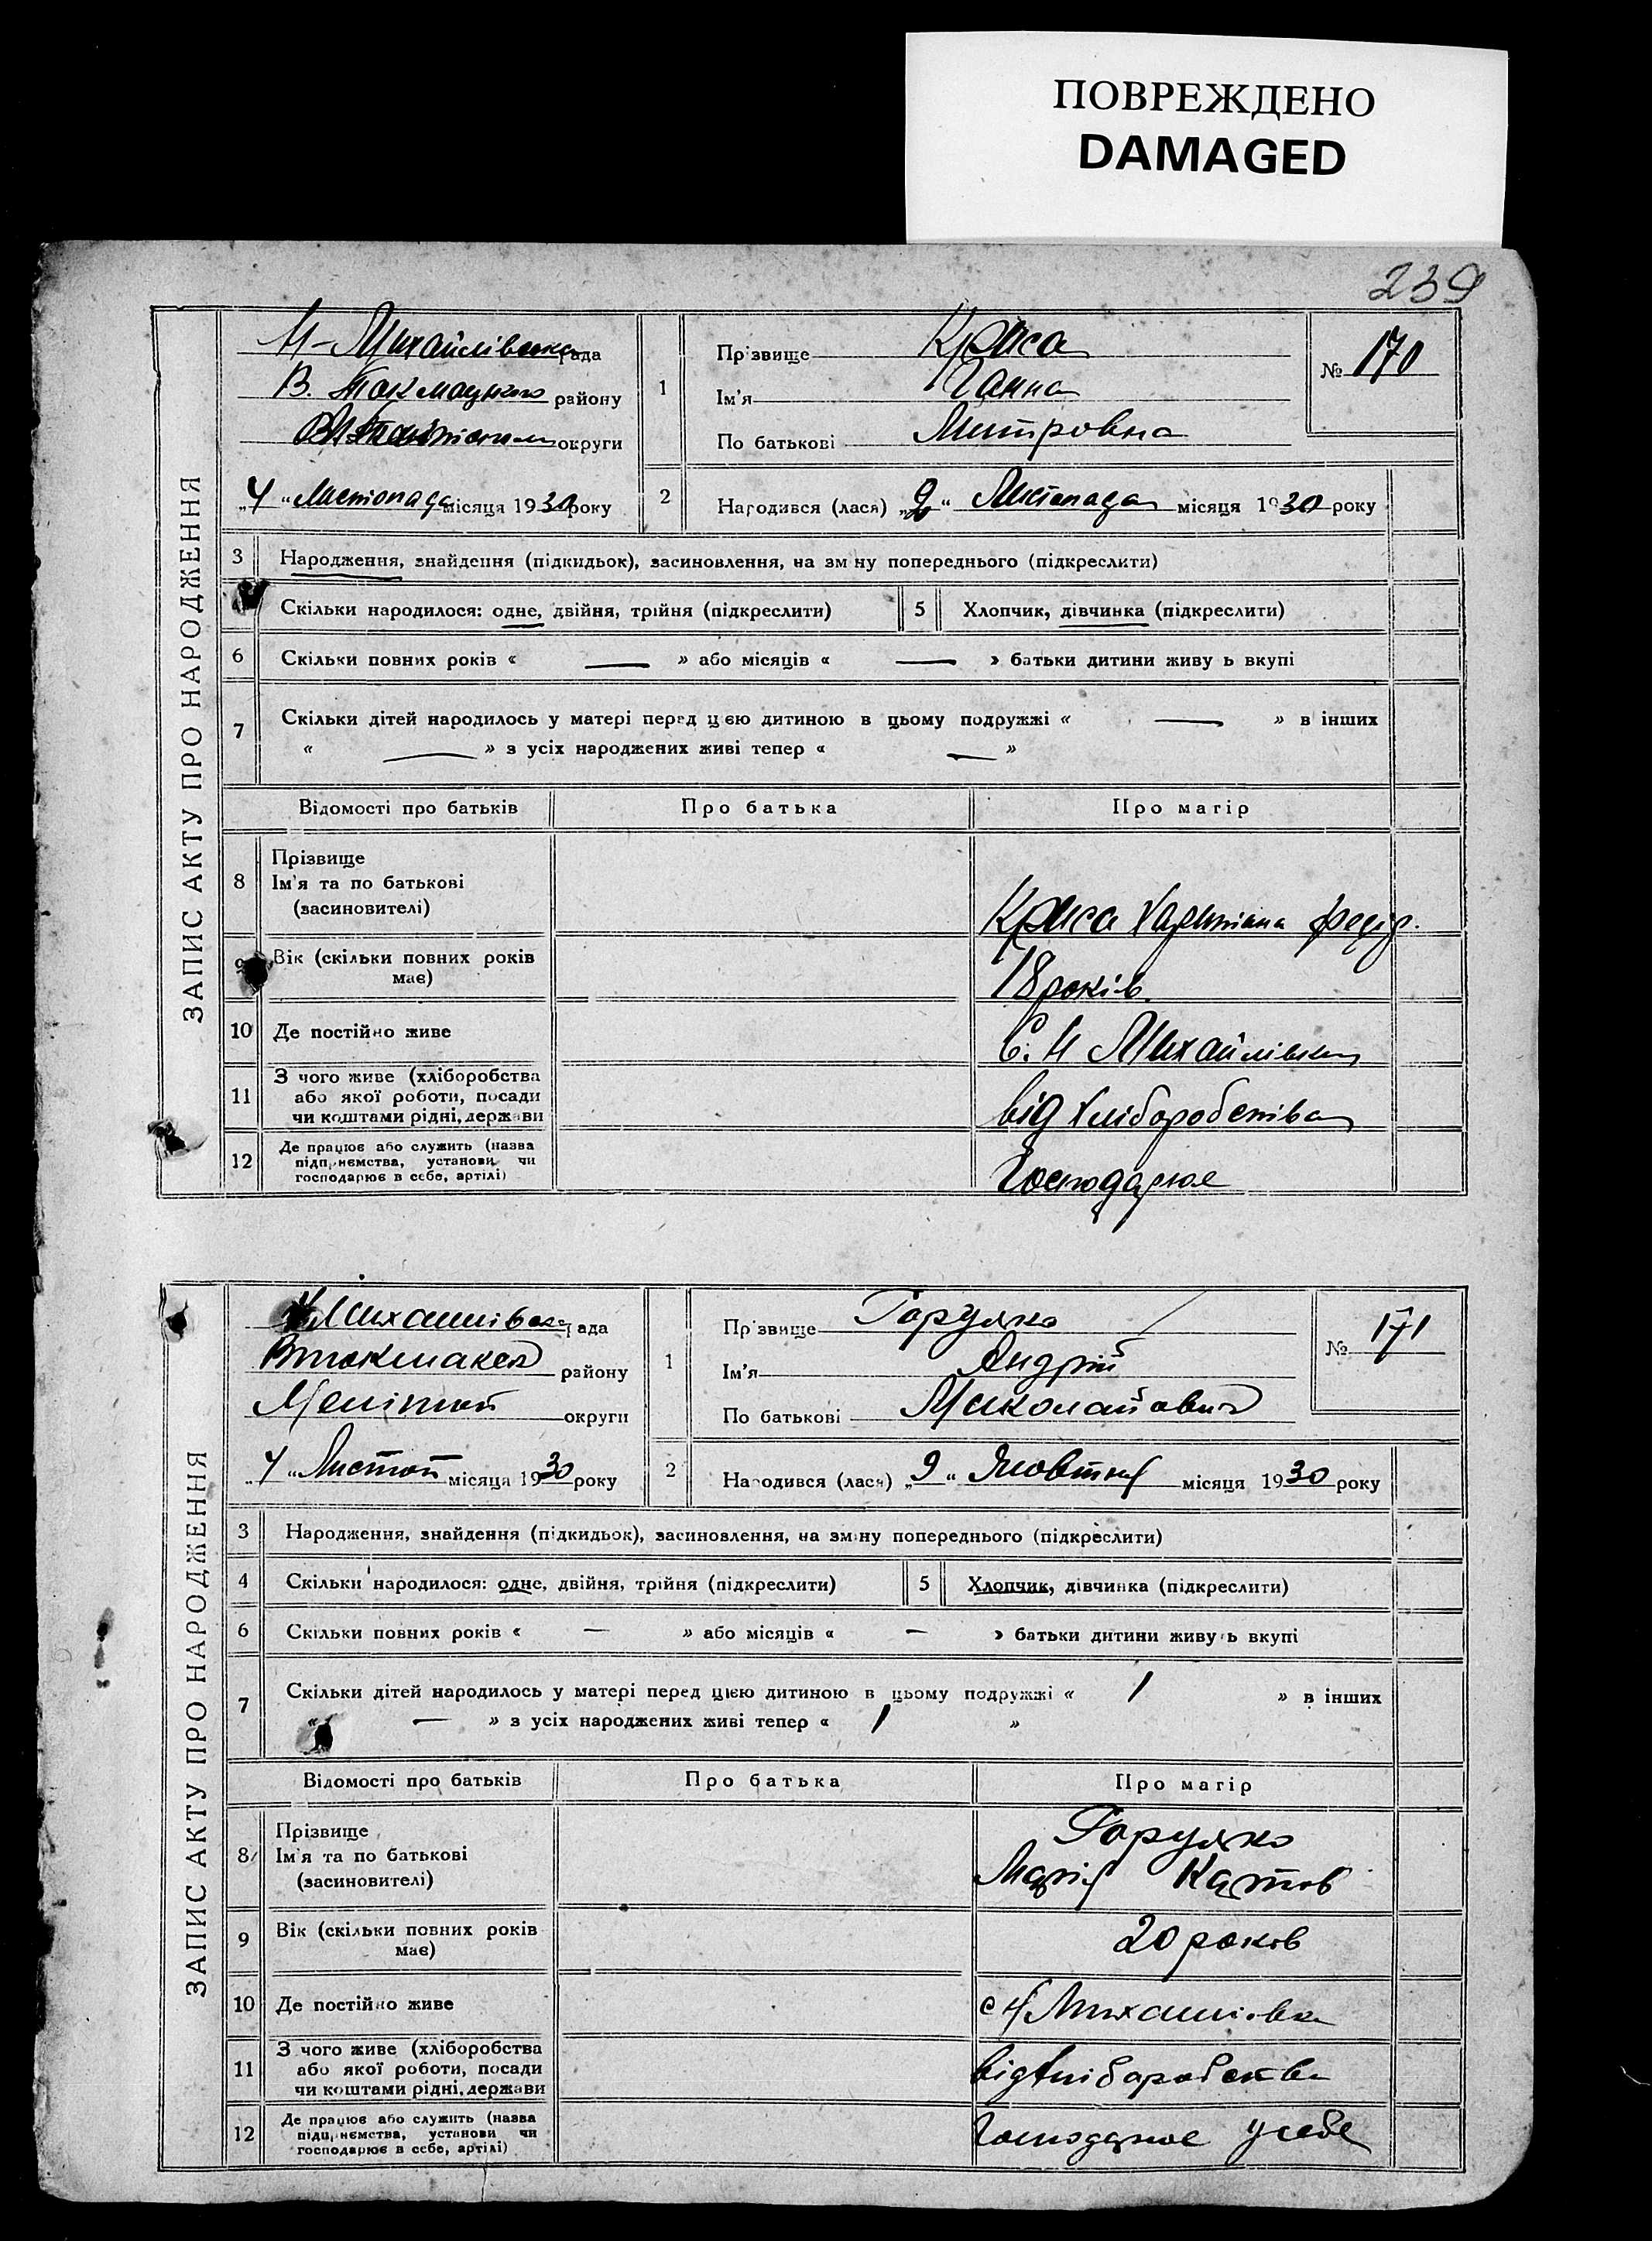 ПОВРЕЖДЕНО
DAMAGED
239
ЗАПИС АКТУ ПРО НАРОДЖЕННЯ
Н-Михайлівська рада
В. Токмацького району
округи
"4" Листопада місяця 1930 року
1
Прізвище Криса
Ім'я Ганна
По батькові Митровна
№ 170
2 Народився (лася) "2" Листопада місяця 1930 року
3 Народження, знайдення (підкидьок), засиновлення, на зміну попереднього (підкреслити)
Скільки народилося: одне, двійня, трійня (підкреслити) 5 Хлопчик, дівчинка (підкреслити)
6 Скільки повних років « — » або місяців « — » батьки дитини живуть вкупі
7 Скільки дітей народилось у матері перед цією дитиною в цьому подружжі « — » в інших
« — » з усіх народжених живі тепер « — »
Відомості про батьків Про батька Про матір
8 Прізвище
Ім'я та по батькові
(засиновителі)
Криса Харитина Федір.
9 Вік (скільки повних років
має)
18 років.
10 Де постійно живе С. Н Михайлівка
11 З чого живе (хліборобства
або якої роботи, посади
чи коштами рідні, держави
від хліборобства
12 Де працює або служить (назва
підприємства, установи чи
господарює в себе, артілі)
Господарює
ЗАПИС АКТУ ПРО НАРОДЖЕННЯ
Михайлівська рада
Втокмаксь району
Мелітоп округи
"4" Листоп місяця 1930 року
1
Прізвище Горулко
Ім'я Андрій
По батькові Миколайович
№ 171
2 Народився (лася) "9" Жовтня місяця 1930 року
3 Народження, знайдення (підкидьок), засиновлення, на зміну попереднього (підкреслити)
4 Скільки народилося: одне, двійня, трійня (підкреслити) 5 Хлопчик, дівчинка (підкреслити)
6 Скільки повних років « — » або місяців « — » батьки дитини живуть вкупі
7 Скільки дітей народилось у матері перед цією дитиною в цьому подружжі « 1 » в інших
« — » з усіх народжених живі тепер « 1 »
Відомості про батьків Про батька Про матір
8 Прізвище
Ім'я та по батькові
(засиновителі)
Горулко
Марія
9 Вік (скільки повних років
має)
20 років
10 Де постійно живе с Н Михайлівка
11 З чого живе (хліборобства
або якої роботи, посади
чи коштами рідні, держави
від хліборобства
12 Де працює або служить (назва
підприємства, установи чи
господарює в себе, артілі)
Господарює у себе